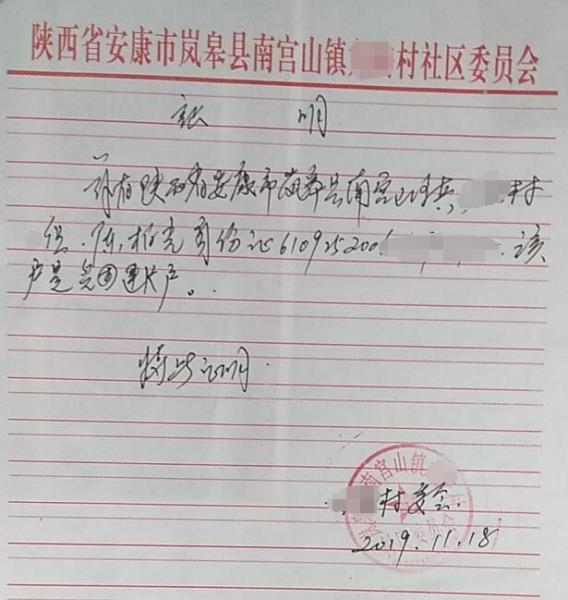 陕西省安康市岚皋县南宫山镇 村社区委员会
证 明
兹有陕西省安康市岚皋县南宫山镇 村
组 陈 身份证6109252001 该
户是贫困建卡户。
特此证明
南宫山镇 村
村委会
2019.11.18